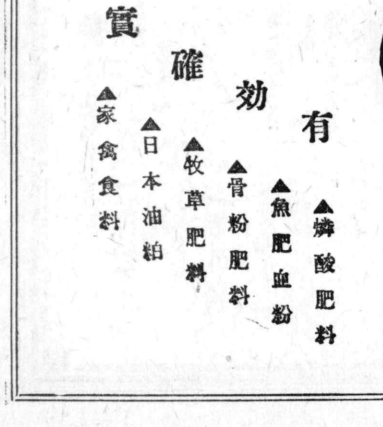 有効確實
▲燐酸肥料
▲魚肥血粉
▲骨粉肥料
▲牧草肥料
▲日本油粕
▲家禽食料